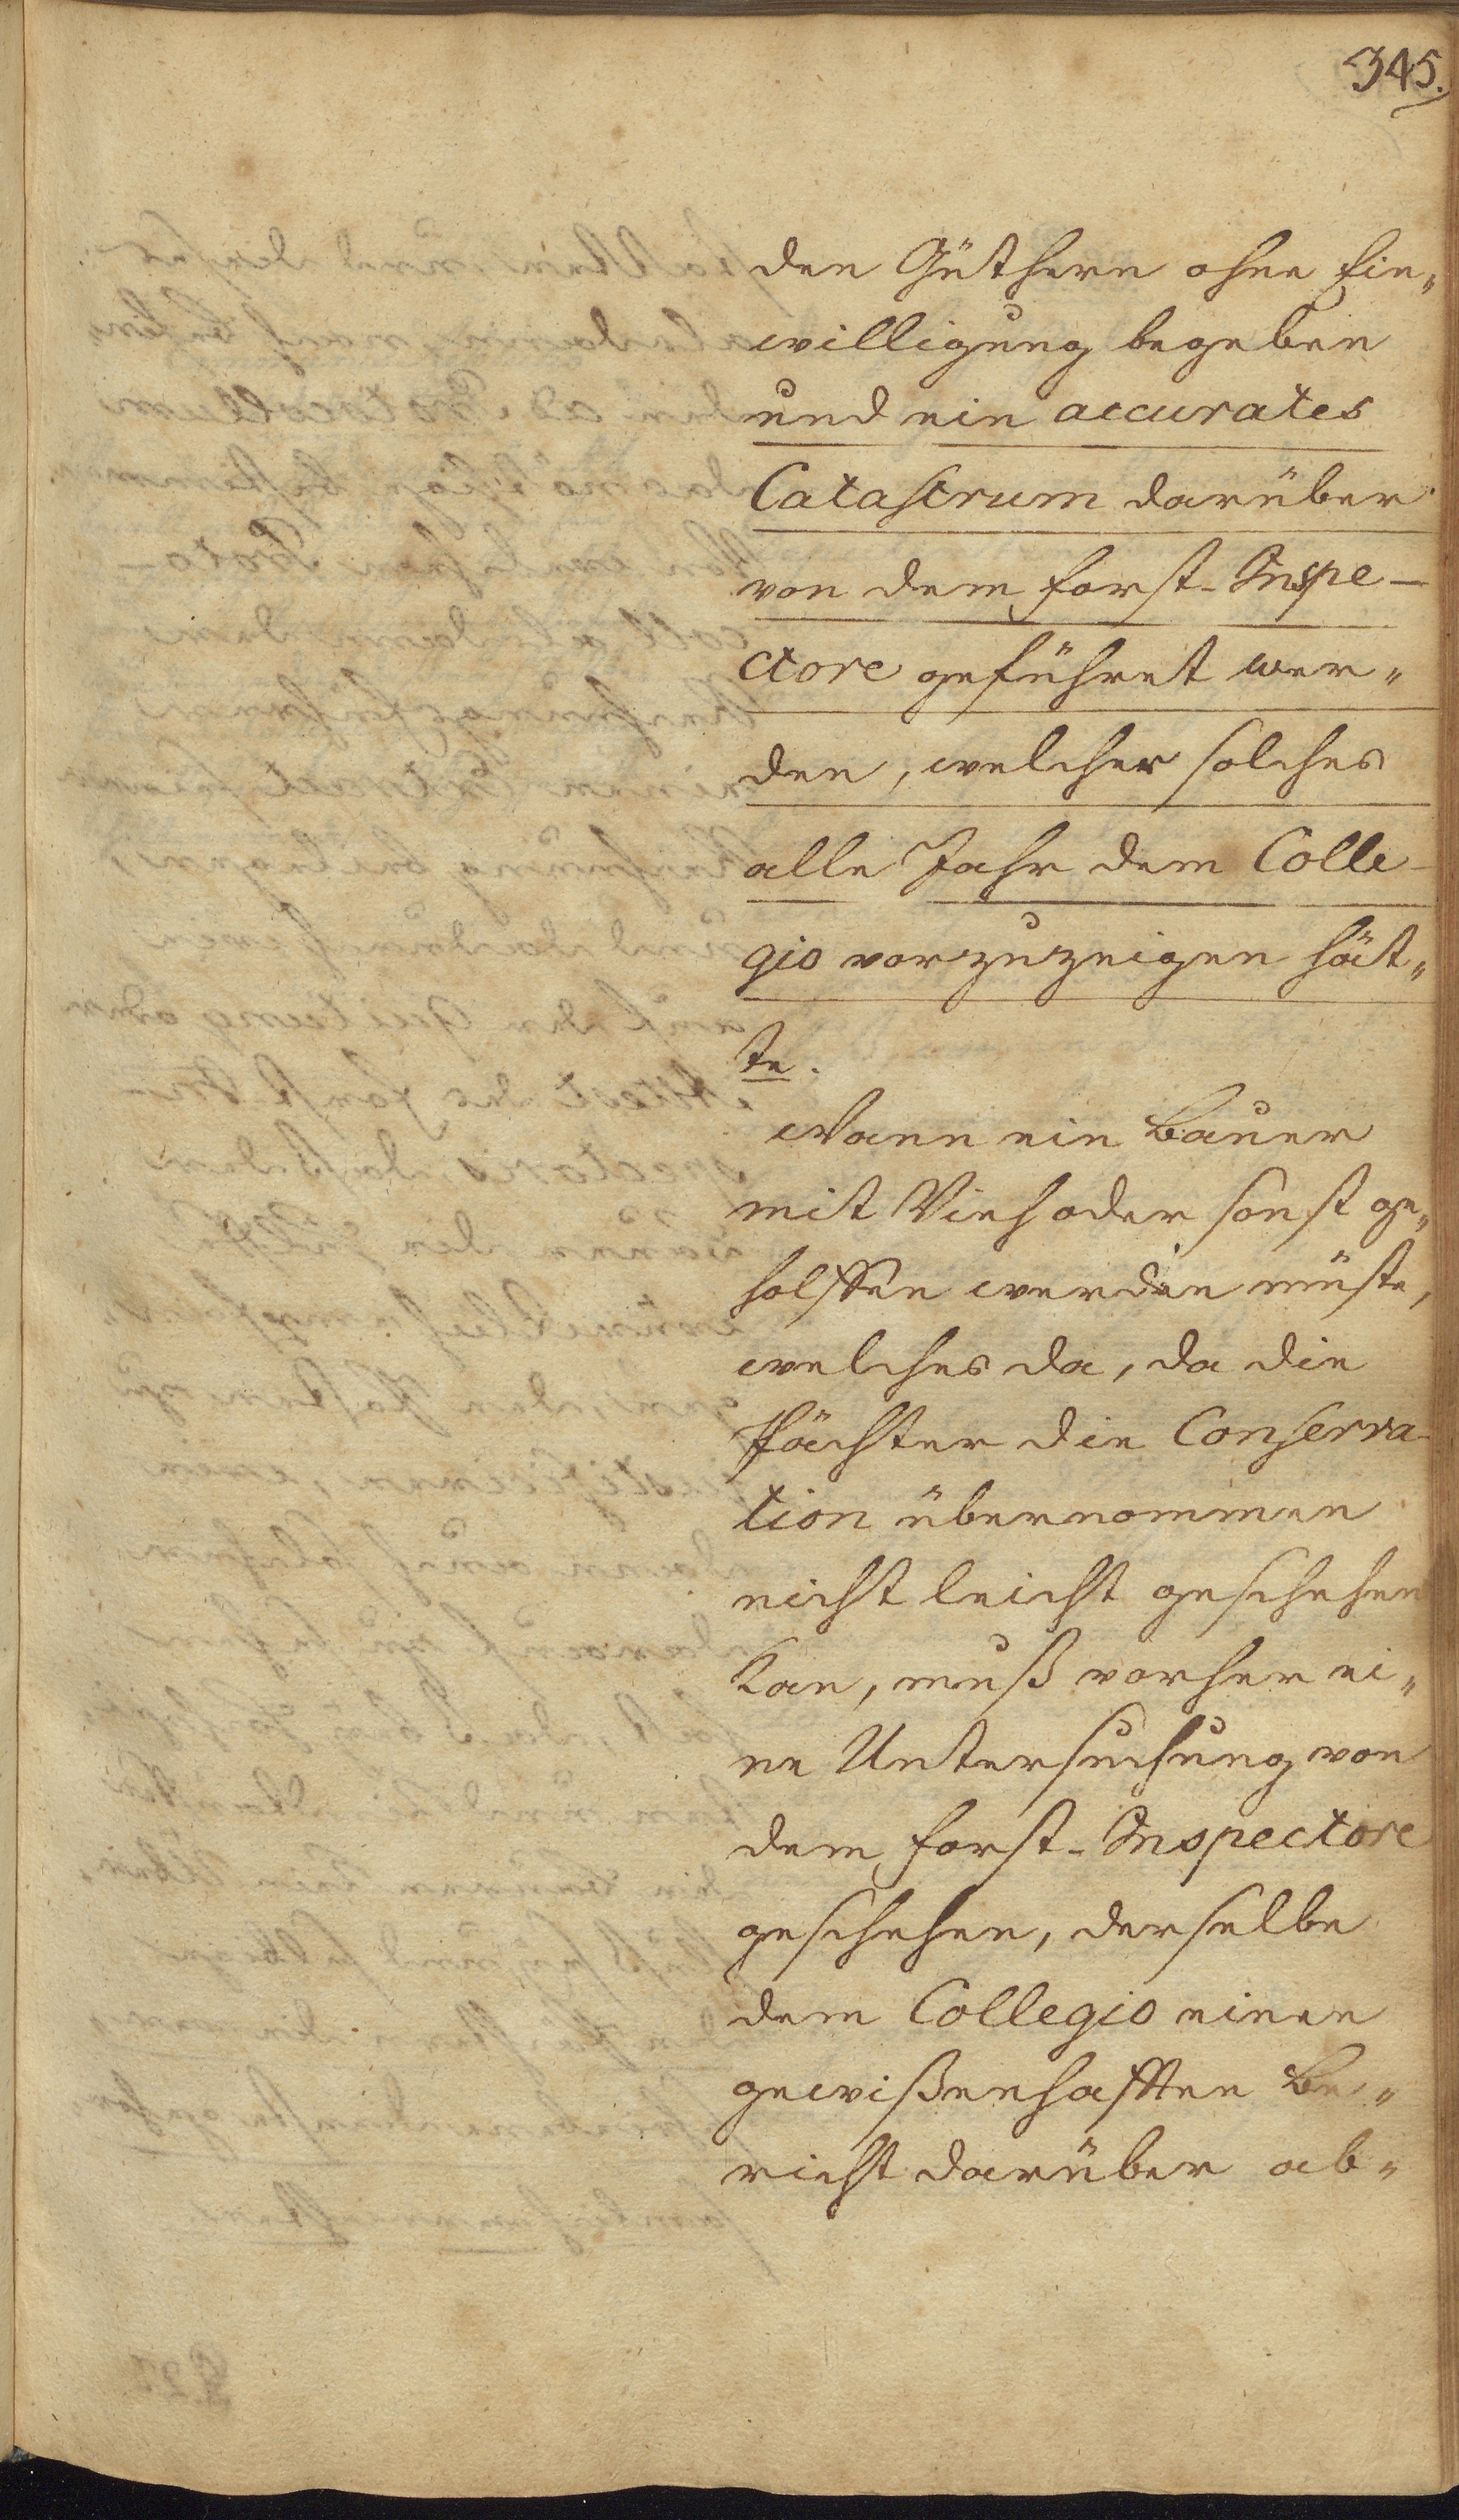 345.
den Güthern ohne Ein„
willigung begeben
und ein accurates
Catastrum darüber
von dem Forst-Inspe-
ctore geführet wer„
den, welcher solches
alle Jahr dem Colle-
gio vorzuzeigen hät„
te.
Wann ein Bauer
mit Vieh oder sonst ge„
holffen werden müste,
welches da, da die
Pächter die Conserva-
tion übernommen
nicht leicht geschehen
kan, muß vorher ei„
ne Untersuchung von
dem Forst-Inspectore
geschehen, derselbe
dem Collegio einen
gewißenhafften Be„
richt darüber ab„